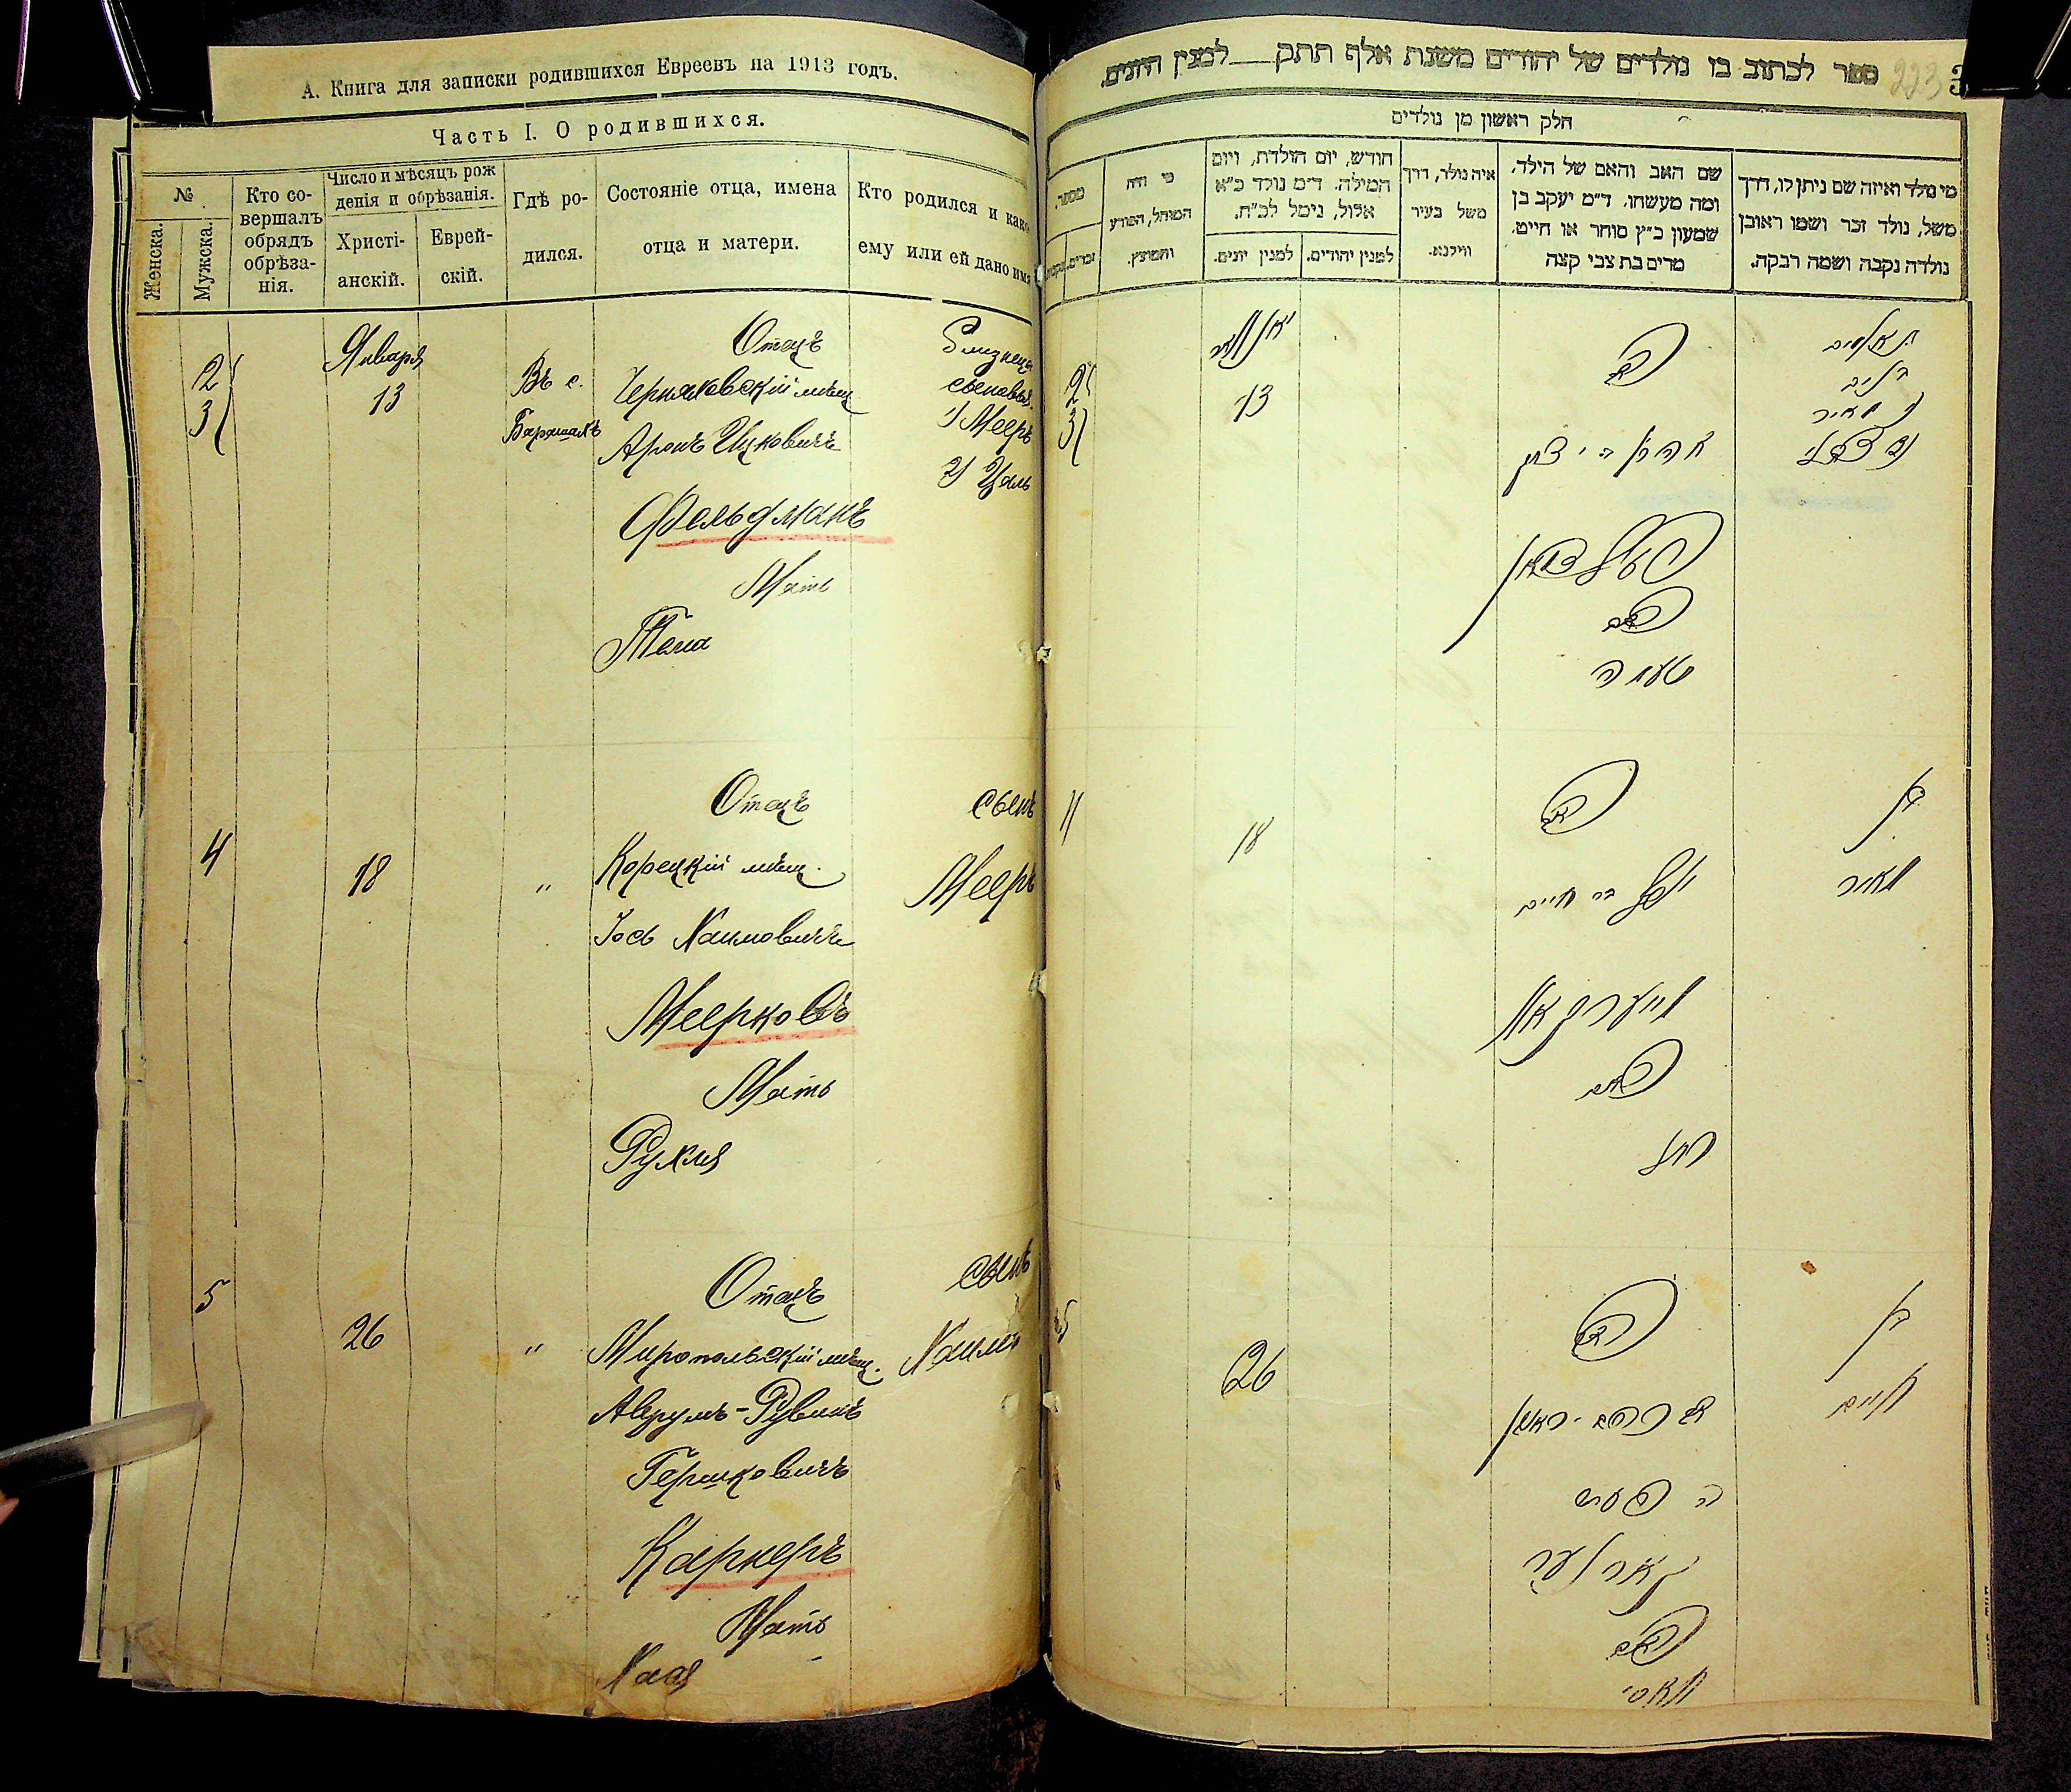 А. Книга для записки родившихся Евреевъ на 1913 годъ.
Часть I. О родившихся.
№
Женска.
Мужска.
Кто со-
вершалъ
обрядъ
обрѣза-
нія.
Число и мѣсяцъ рож
денія и обрѣзанія.
Христі-
анскій.
Еврей-
скій.
Гдѣ ро-
дился.
Состояніе отца, имена
отца и матери.
Кто родился и како
ему или ей дано имя
2
3
Января
13
Въ с.
Барашахъ
Отецъ
Черняховскій мѣщ
Аронъ Ицковичъ
Фельдманъ
Мать
Близнецы
сыновья
1) Мееръ
2) Цаль
4
18
"
Отецъ
Корецкій мѣщ.
Іось Хаимовичъ
Мееровъ
Мать
Рухля
сынъ
Мееръ
5
26
"
Отецъ
Миропольскій мѣщ.
Аврумъ-Рувинъ
Гершковичъ
Карнеръ
Мать
Хася
сынъ
Хаимъ
ספר לכתוב בו נולדים של יהודים משנת אלף תתק למנין היונים.
223
3
חלק ראשון מן נולדים
מספר.
זכרים.
מי היה
המוהל, הפורע
והמוצץ.
חודש, יום הולדת, ויום
המילה. ד״מ נולד כ״א
אלול, נימל לכ״ח.
למנין יונים.
למנין יהודים.
איה נולד, דרך
משל בעיר
ווילנא.
שם האב והאם של הילד,
ומה מעשהו. ד״מ יעקב בן
שמעון כ״ץ סוחר או חייט.
מרים בת צבי קצה
מי נולד ואיזה שם ניתן לו, דרך
משל, נולד זכר ושמו ראובן
נולדה נקבה ושמה רבקה.
2
3
יאנואר
13
האב
אהרן ב׳ יצחק
פעלדמאן
האם
תאומים
בנים
א׳ מאיר
4
18
האב
יוסל בר חיים
מייערקאוו
האם
רחל
בן
מאיר
5
26
האב
אברהם-ראובן
ב׳ הערש
קארנער
האם
חאסי
בן
חיים